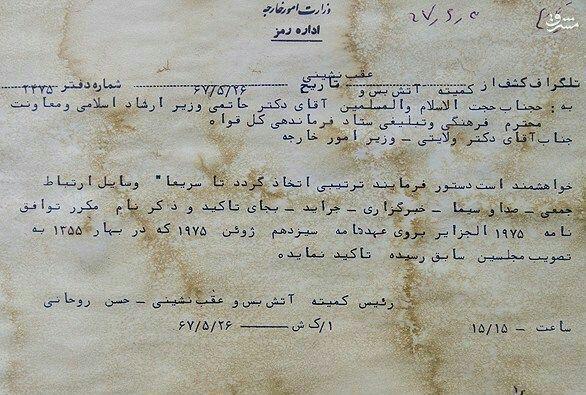 وزارت امور خارجه
اداره رمز
۲۷٫۶٫۰۳
مشرق
تلگراف کشف از کمیته آتش بس و عقب نشینی تاریخ ۶۷/۵/۲۶ شماره دفتر ۲۴۷۵
به : جناب حجت الاسلام والمسلمین آقای دکتر حاتمی وزیر ارشاد اسلامی ومعاونت
محترم فرهنگی وتبلیغی ستاد فرماندهی کل قوا ه
جناب آقای دکتر ولایتی ــ وزیر امور خارجه
خواهشمند است دستور فرمایند ترتیبی اتخاذ گردد تا سریعا" وسایل ارتباط
جمعی ــ صدا و سیما ــ خبرگزاری ــ جراید ــ بجای تاکید و ذکر نام مکرر توافق
نامه ۱۹۷۵ الجزایر بروی عهدنامه سیزدهم ژوئن ۱۹۷۵ که در بهار ۱۳۵۵ به
تصویب مجلسین سابق رسیده تاکید نماید ه
رئیس کمیته آتش بس و عقب نشینی ــ حسن روحانی
ساعت ــ ۱۵/۱۵ ۱/ک ش ــــــ ۶۷/۵/۲۶